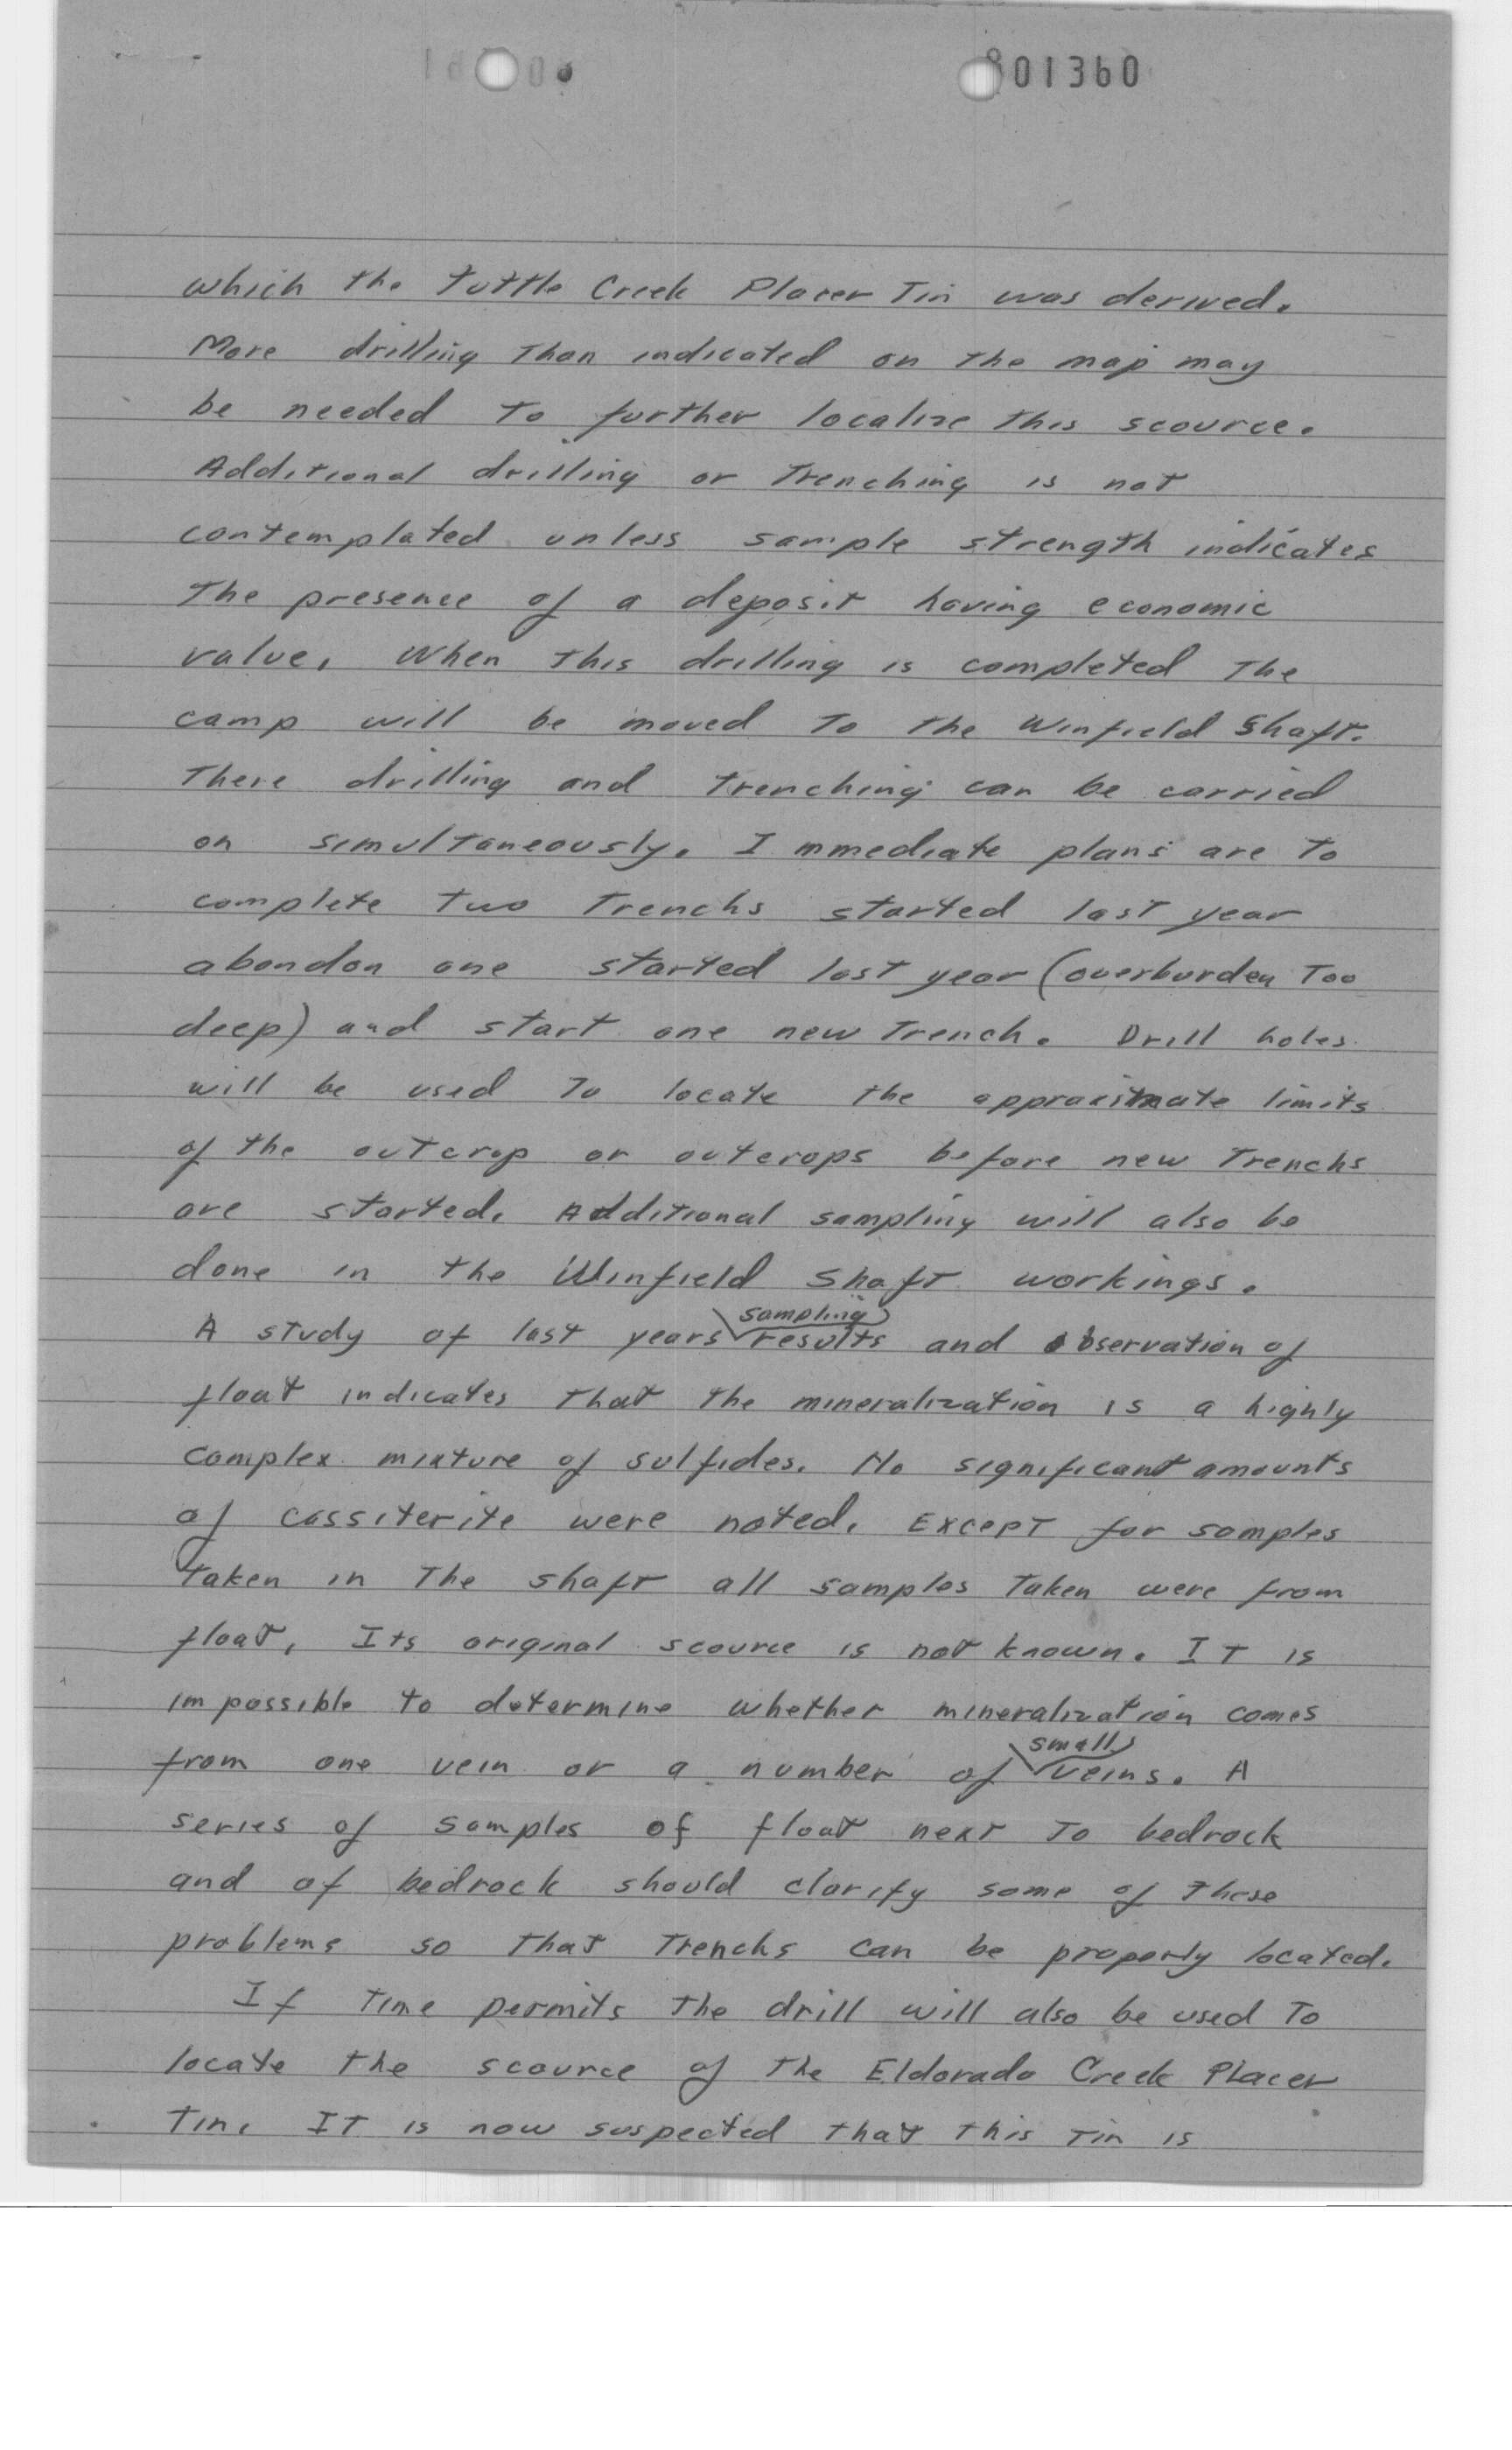 801360
which the Tuttle Creek Placer Tin was derived.
More drilling Than indicated on The map may
be needed To further localize This scource.
Additional drilling or Trenching is not
contemplated unless sample strength indicates
The presence of a deposit having economic
value. When This drilling is completed The
camp will be moved To The Winfield Shaft.
There drilling and trenching can be carried
on simultaneously. Immediate plans are To
complete Two Trenchs started last year
abandon one started last year (overburden Too
deep) and start one new Trench. Drill holes
will be used To locate The approximate limits
of the outcrop or outcrops before new Trenchs
are started. Additional sampling will also be
done in the Winfield Shaft workings.
sampling
A study of last years results and observation of
float indicates That The mineralization is a highly
complex mixture of sulfides. No significant amounts
of cassiterite were noted. Except for samples
taken in The shaft all samples Taken were from
float, Its original scource is not known. IT is
impossible to determine whether mineralization comes
small
from one vein or a number of veins. A
series of samples of float next To bedrock
and of bedrock should clarify some of These
problems so That Trenchs can be properly located.
If Time permits The drill will also be used To
locate The scource of The Eldorado Creek Placer
Tin. IT is now suspected that This Tin is